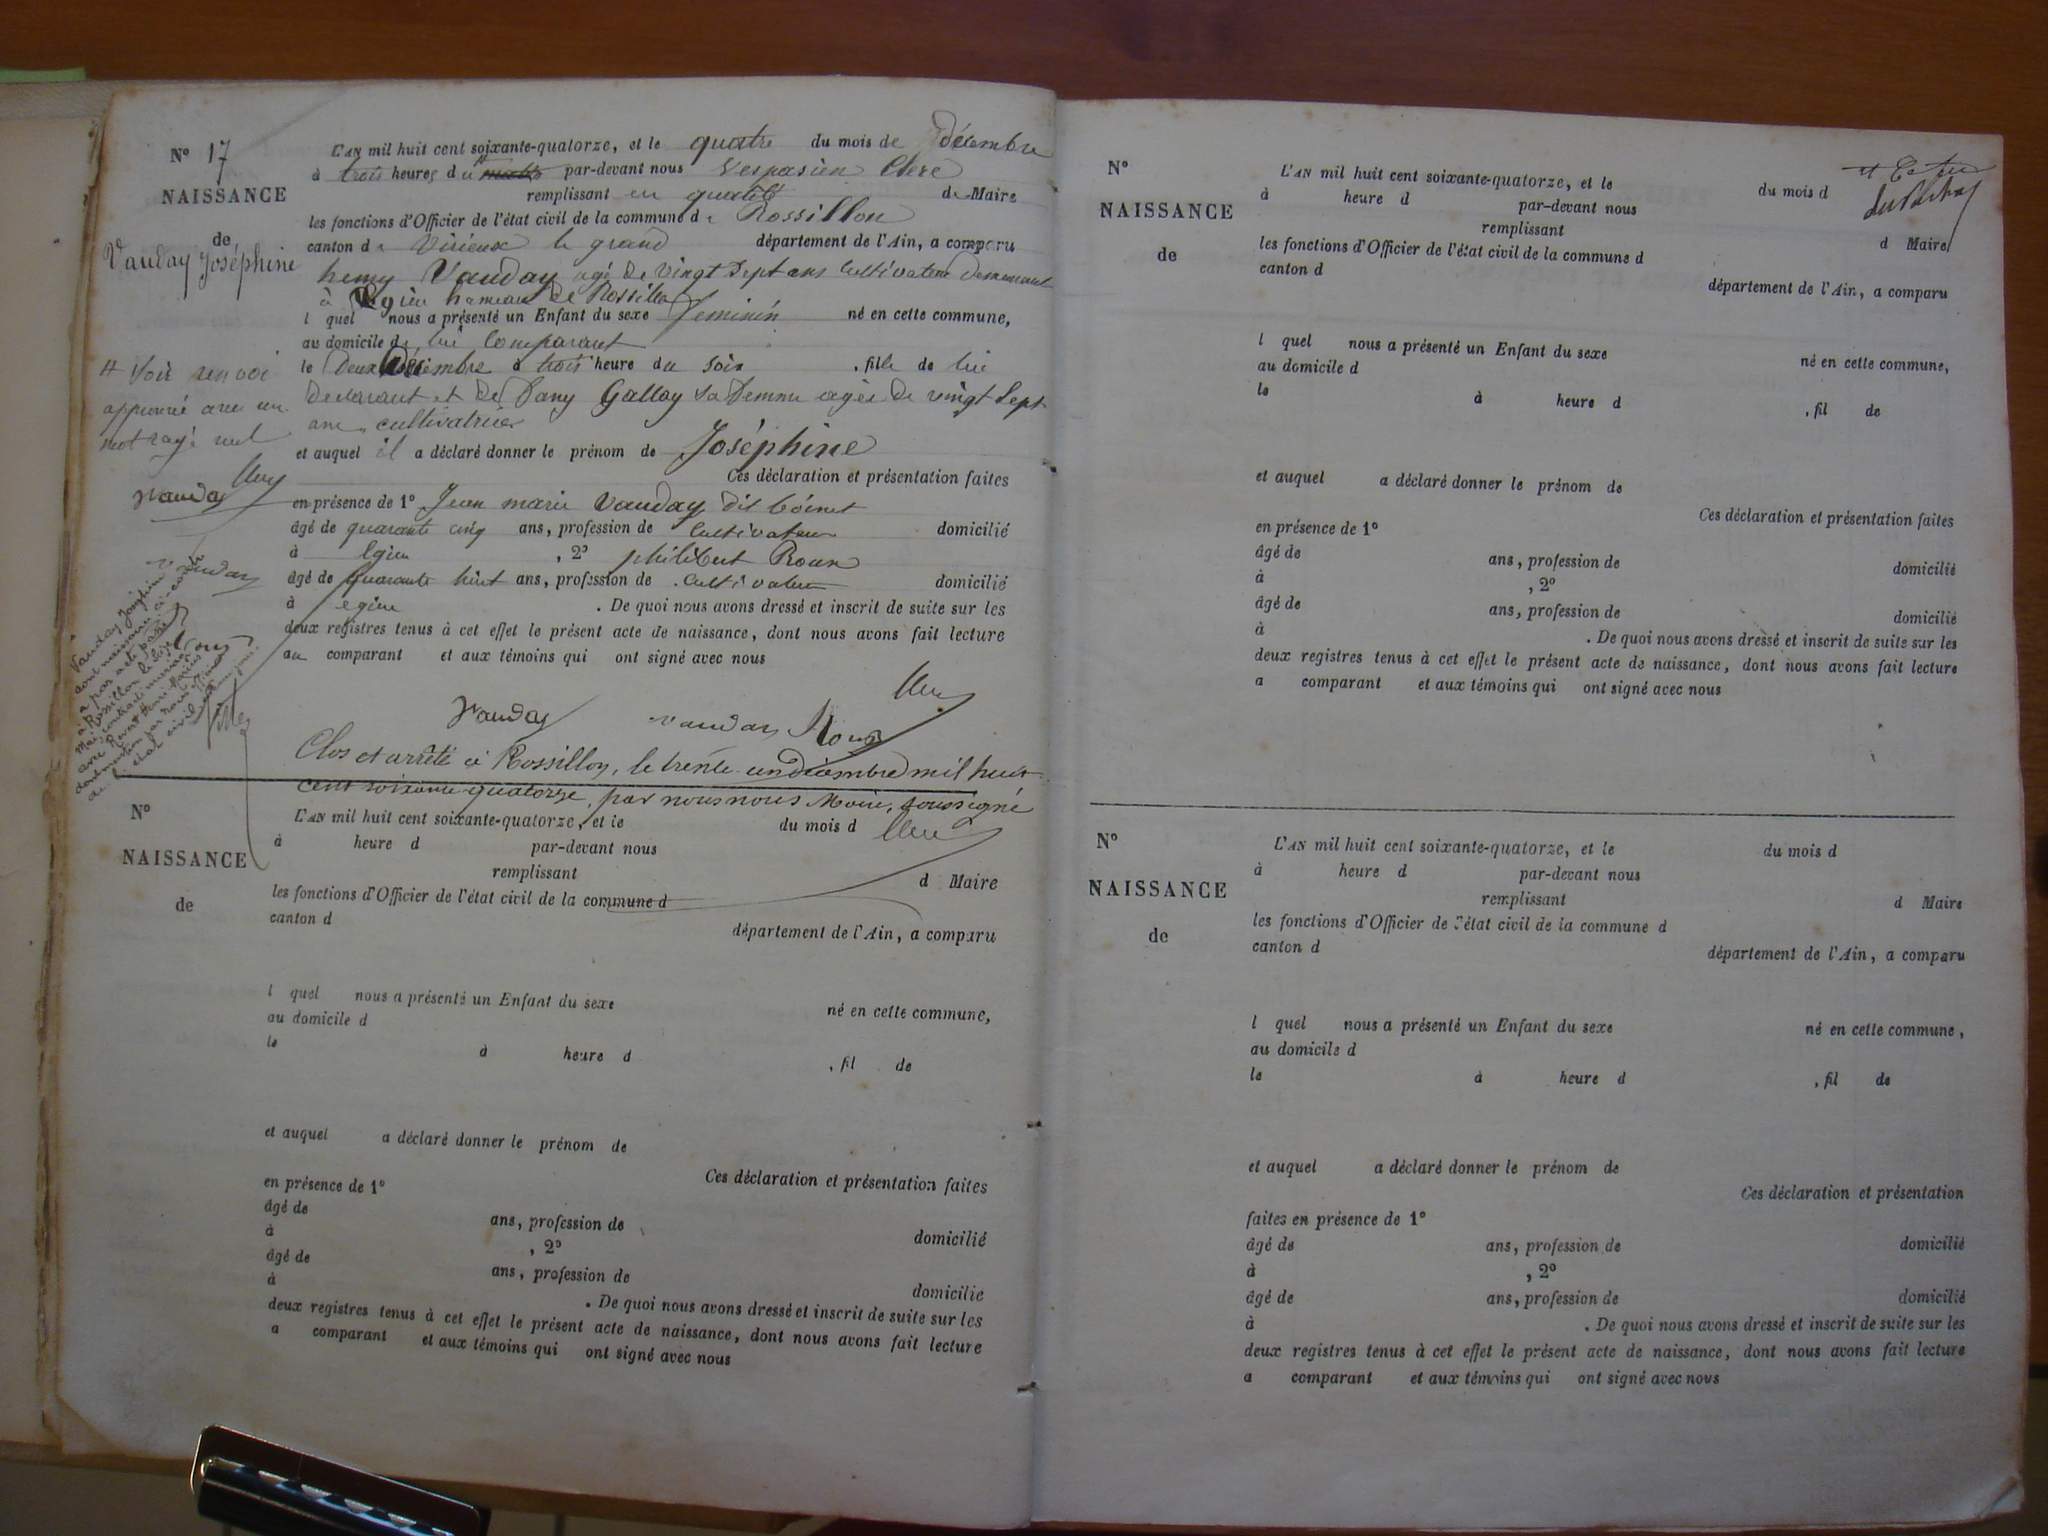 N° 17
NAISSANCE
de
Vauday Joséphine
L'AN mil huit cent soixante-quatorze, et le quatre du mois de décembre
à trois heures du par-devant nous Vespasien Clerc
remplissant en qualité de Maire
les fonctions d'Officier de l'état civil de la commune de Rossillon
canton de Virieux le grand département de l'Ain, a comparu
hemy Vauday agé de vingt sept ans Cultivateur demeurant
à Egieu hameau de Rossillon
l quel nous a présenté un Enfant du sexe feminin né en cette commune,
au domicile de lui Comparant
le deux décembre à trois heure du soir , fille de lui
declarant et de Fany Gallay sa femme agée de vingt sept
ans cultivatrice
et auquel il a déclaré donner le prénom de Joséphine
Ces déclaration et présentation faites
en présence de 1° Jean marie Vauday dit
âgé de quarante cinq ans, profession de Cultivateur domicilié
à Egieu , 2° philibert Roux
âgé de quarante huit ans, profession de Cultivateur domicilié
à Egieu . De quoi nous avons dressé et inscrit de suite sur les
deux registres tenus à cet effet le présent acte de naissance, dont nous avons fait lecture
au comparant et aux témoins qui ont signé avec nous
Voir renvoi
approuvé avec un
mot rayé nul
Clerc
Vauday
Vauday
Roux
Vauday Joséphine
dont naissance ci-contre
a par acte passé
à Rossillon le
Mai, contracté mariage
avec Henri
dont mention par nous
de l'état civil
Clerc
Vauday Vauday Roux
Clos et arrêté à Rossillon, le trente un décembre mil huit
cent soixante quatorze, par nous nous Maire, soussigné
Clerc
N°
NAISSANCE
de
L'AN mil huit cent soixante-quatorze, et le du mois d
à heure d par-devant nous
remplissant d Maire
les fonctions d'Officier de l'état civil de la commune d
canton d département de l'Ain, a comparu
l quel nous a présenté un Enfant du sexe né en cette commune,
au domicile d
le à heure d , fil de
et auquel a déclaré donner le prénom de
Ces déclaration et présentation faites
en présence de 1°
âgé de ans, profession de domicilié
à , 2°
âgé de ans, profession de domicilié
à . De quoi nous avons dressé et inscrit de suite sur les
deux registres tenus à cet effet le présent acte de naissance, dont nous avons fait lecture
a comparant et aux témoins qui ont signé avec nous
N°
NAISSANCE
de
L'AN mil huit cent soixante-quatorze, et le du mois d
à heure d par-devant nous
remplissant d Maire
les fonctions d'Officier de l'état civil de la commune d
canton d département de l'Ain, a comparu
l quel nous a présenté un Enfant du sexe né en cette commune,
au domicile d
le à heure d , fil de
et auquel a déclaré donner le prénom de
Ces déclaration et présentation faites
en présence de 1°
âgé de ans, profession de domicilié
à , 2°
âgé de ans, profession de domicilié
à . De quoi nous avons dressé et inscrit de suite sur les
deux registres tenus à cet effet le présent acte de naissance, dont nous avons fait lecture
a comparant et aux témoins qui ont signé avec nous
N°
NAISSANCE
de
L'AN mil huit cent soixante-quatorze, et le du mois d
à heure d par-devant nous
remplissant d Maire
les fonctions d'Officier de l'état civil de la commune d
canton d département de l'Ain, a comparu
l quel nous a présenté un Enfant du sexe né en cette commune,
au domicile d
le à heure d , fil de
et auquel a déclaré donner le prénom de
Ces déclaration et présentation
faites en présence de 1°
âgé de ans, profession de domicilié
à , 2°
âgé de ans, profession de domicilié
à . De quoi nous avons dressé et inscrit de suite sur les
deux registres tenus à cet effet le présent acte de naissance, dont nous avons fait lecture
a comparant et aux témoins qui ont signé avec nous